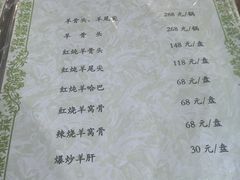 羊骨头、羊尾尖 268元/锅
羊骨头 268元/锅
红炖羊骨头 148元/盘
红炖羊尾尖 118元/盘
红炖羊哈巴 68元/盘
红烧羊窝骨 68元/盘
辣烧羊窝骨 68元/盘
爆炒羊肝 30元/盘